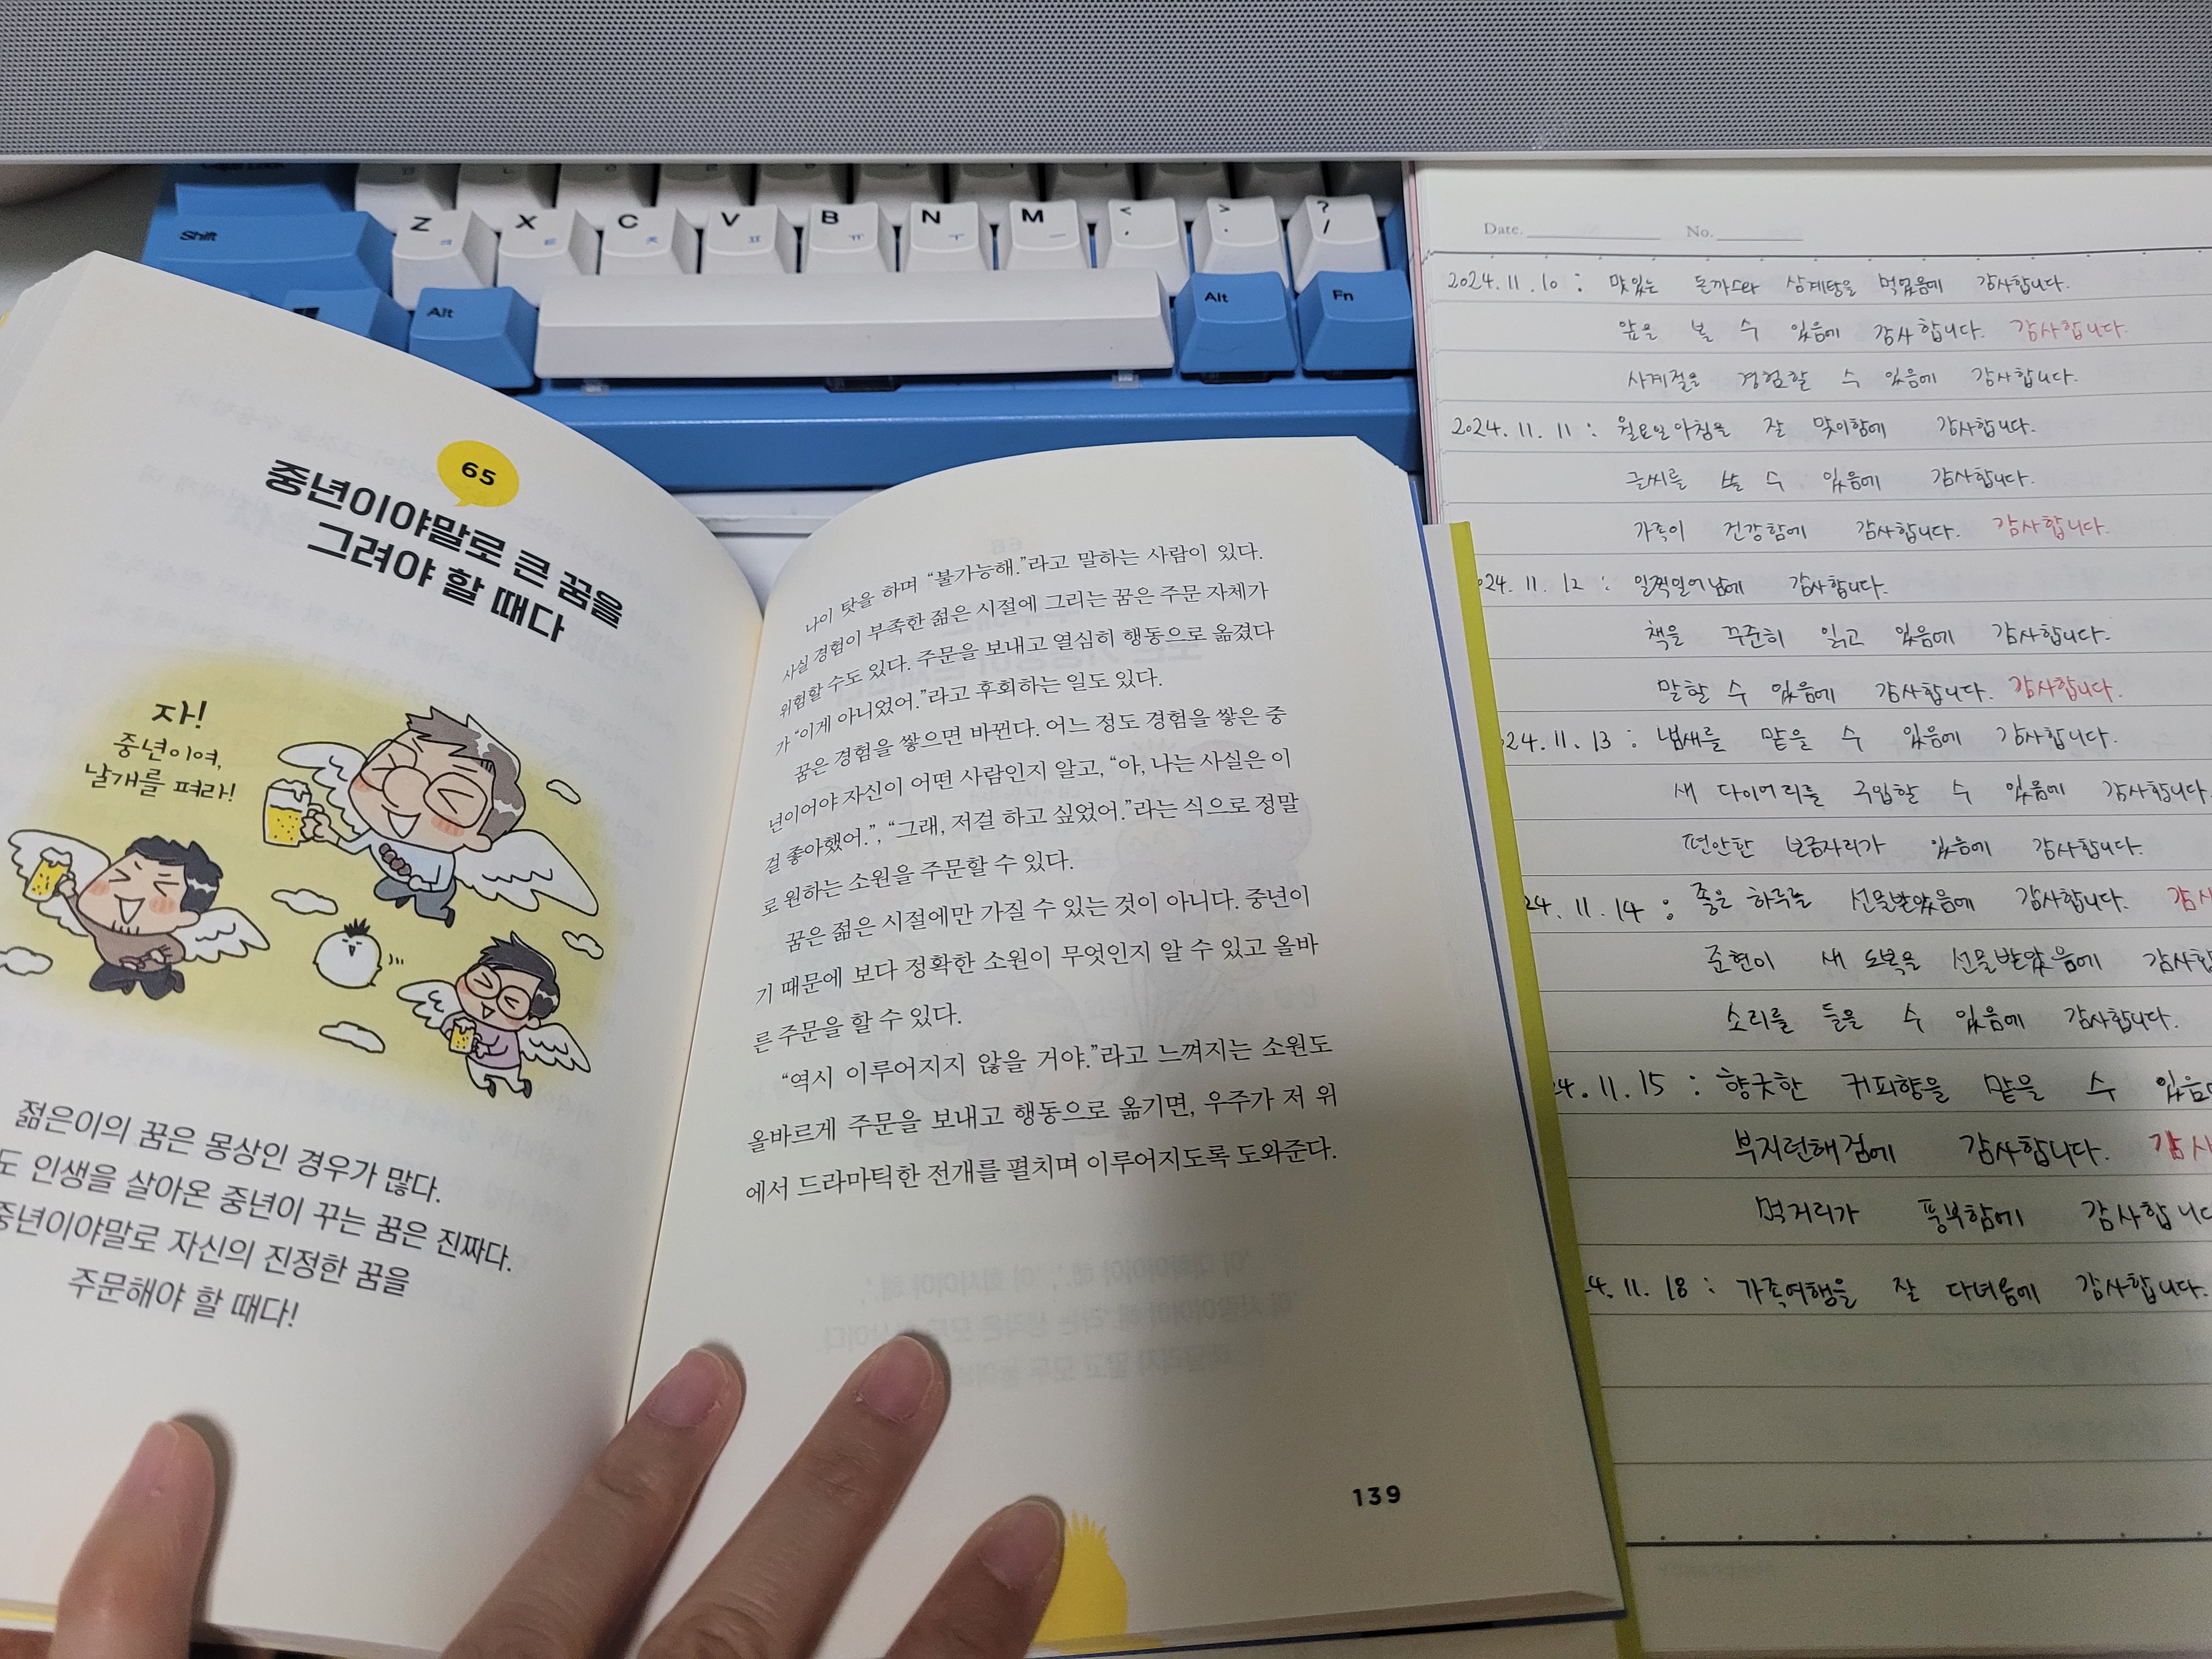 Shift
Z X C V B N M < , > . ? /
ㅋ ㅌ ㅊ ㅍ ㅠ ㅜ ㅡ
Alt Alt Fn
65
중년이야말로 큰 꿈을
그려야 할 때다
자!
중년이여,
날개를 펴라!
젊은이의 꿈은 몽상인 경우가 많다.
도 인생을 살아온 중년이 꾸는 꿈은 진짜다.
중년이야말로 자신의 진정한 꿈을
주문해야 할 때다!
나이 탓을 하며 “불가능해.”라고 말하는 사람이 있다.
사실 경험이 부족한 젊은 시절에 그리는 꿈은 주문 자체가
위험할 수도 있다. 주문을 보내고 열심히 행동으로 옮겼다
가 “이게 아니었어.”라고 후회하는 일도 있다.
꿈은 경험을 쌓으면 바뀐다. 어느 정도 경험을 쌓은 중
년이어야 자신이 어떤 사람인지 알고, “아, 나는 사실은 이
걸 좋아했어.”, “그래, 저걸 하고 싶었어.”라는 식으로 정말
로 원하는 소원을 주문할 수 있다.
꿈은 젊은 시절에만 가질 수 있는 것이 아니다. 중년이
기 때문에 보다 정확한 소원이 무엇인지 알 수 있고 올바
른 주문을 할 수 있다.
“역시 이루어지지 않을 거야.”라고 느껴지는 소원도
올바르게 주문을 보내고 행동으로 옮기면, 우주가 저 위
에서 드라마틱한 전개를 펼치며 이루어지도록 도와준다.
139
Date. No.
2024. 11. 10 : 맛있는 돈까스와 삼계탕을 먹었음에 감사합니다.
앞을 볼 수 있음에 감사합니다. 감사합니다.
사계절을 경험할 수 있음에 감사합니다.
2024. 11. 11 : 월요일아침을 잘 맞이함에 감사합니다.
글씨를 쓸 수 있음에 감사합니다.
가족이 건강함에 감사합니다. 감사합니다.
024. 11. 12 : 일찍일어남에 감사합니다.
책을 꾸준히 읽고 있음에 감사합니다.
말할 수 있음에 감사합니다. 감사합니다.
24. 11. 13 : 냄새를 맡을 수 있음에 감사합니다.
새 다이어리를 구입할 수 있음에 감사합니다.
편안한 보금자리가 있음에 감사합니다.
24. 11. 14 : 좋은 하루를 선물받았음에 감사합니다. 감사
준현이 새 도복을 선물받았음에 감사합
소리를 들을 수 있음에 감사합니다.
24. 11. 15 : 향긋한 커피향을 맡을 수 있음에
부지런해짐에 감사합니다. 감사
먹거리가 풍부함에 감사합니다
4. 11. 18 : 가족여행을 잘 다녀옴에 감사합니다.